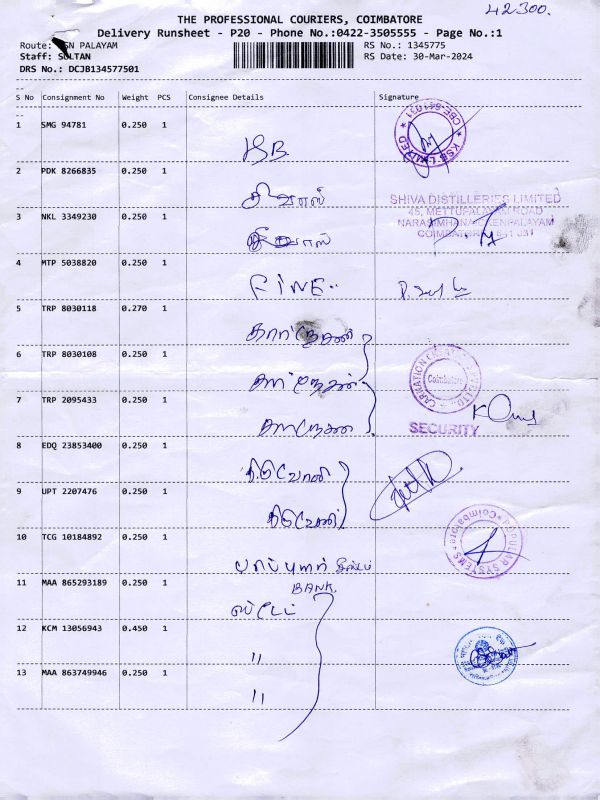 42300.
THE PROFESSIONAL COURIERS, COIMBATORE
Delivery Runsheet - P20 - Phone No.:0422-3505555 - Page No.:1
Route: PALAYAM RS No.: 1345775
Staff: SULTAN RS Date: 30-Mar-2024
DRS No.: DCJB134577501
S No Consignment No Weight PCS Consignee Details Signature
1 SMG 94781 0.250 1
KSB LIMITED * CBE-641031 *
2 PDK 8266835 0.250 1 சிவாஸ்
SHIVA DISTILLERIES LIMITED
45, METTUPALAYAM ROAD
3 NKL 3349230 0.250 1 சிவாஸ்
NARASIMHANAICKENPALAYAM
COIMBATORE - 641 031
4 MTP 5038820 0.250 1 FINE..
5 TRP 8030118 0.270 1
6 TRP 8030108 0.250 1
Coimbatore
7 TRP 2095433 0.250 1
SECURITY
8 EDQ 23853400 0.250 1
9 UPT 2207476 0.250 1
10 TCG 10184892 0.250 1 பாப்புலர்
POPULAR SYSTEMS * Coimbatore *
11 MAA 865293189 0.250 1 BANK
ஸ்டேட்
12 KCM 13056943 0.450 1 "
13 MAA 863749946 0.250 1 "